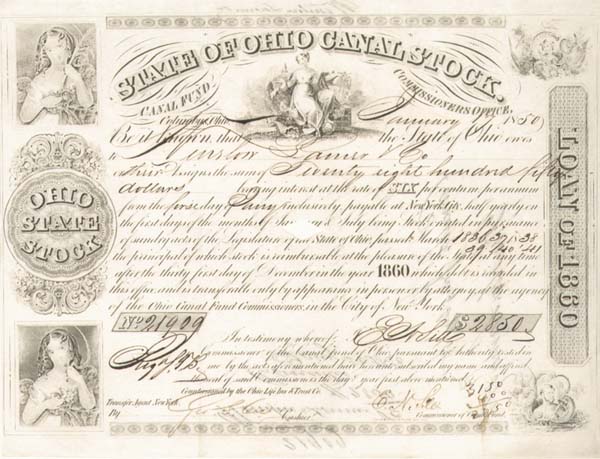 STATE OF OHIO CANAL STOCK.
CANAL FUND
COMMISSIONERS OFFICE,
Columbus, Ohio January 1850
Be it known, that the State of Ohio owes
to Winslow Lanier & Co
or their assigns the sum of Twenty eight hundred fifty
dollars bearing interest at the rate of SIX per centum per annum
from the first day inclusively, payable at New York City, half yearly on
the first days of the months of January & July being Stock created in pursuance
of sundry acts of the Legislature of the State of Ohio, passed March 1836 37 38
39 40 41
the principal of which stock is reimbursable at the pleasure of the State at any time
after the thirty first day of December in the year 1860, which debt is recorded in
this office and is transferable only by appearance in person or by attorney at the agency
of the Ohio Canal Fund Commissioners in the City of New York.
No 21909
$2850
In testimony whereof, I
Commissioner of the Canal Fund of Ohio, pursuant to authority vested in
me by the acts aforementioned have hereunto subscribed my name and affixed
Seal of said Commissioners the day & year first above mentioned
Countersigned by the Ohio Life Ins & Trust Co.
Transfer Agent New York.
By
Cashier
Commissioner of Canal Fund.
OHIO
STATE
STOCK
LOAN OF 1860